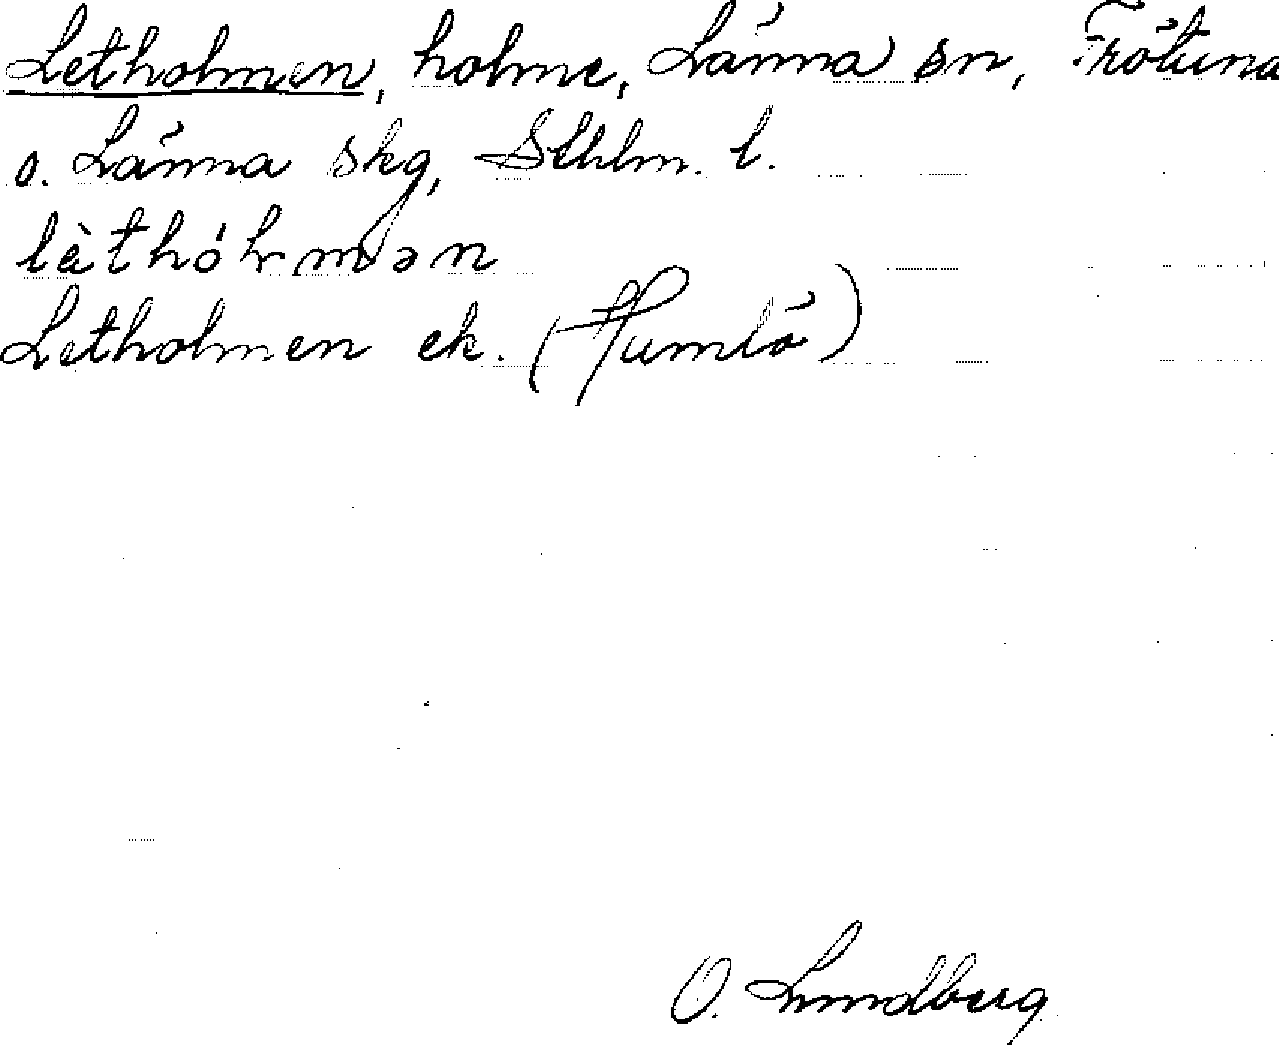 Letholmen, holme, Länna sn, Frötuna
o. Länna skg, Sthlm. l.
lèthól-mən
Letholmen ek. (Humlö)
O. Lundberg